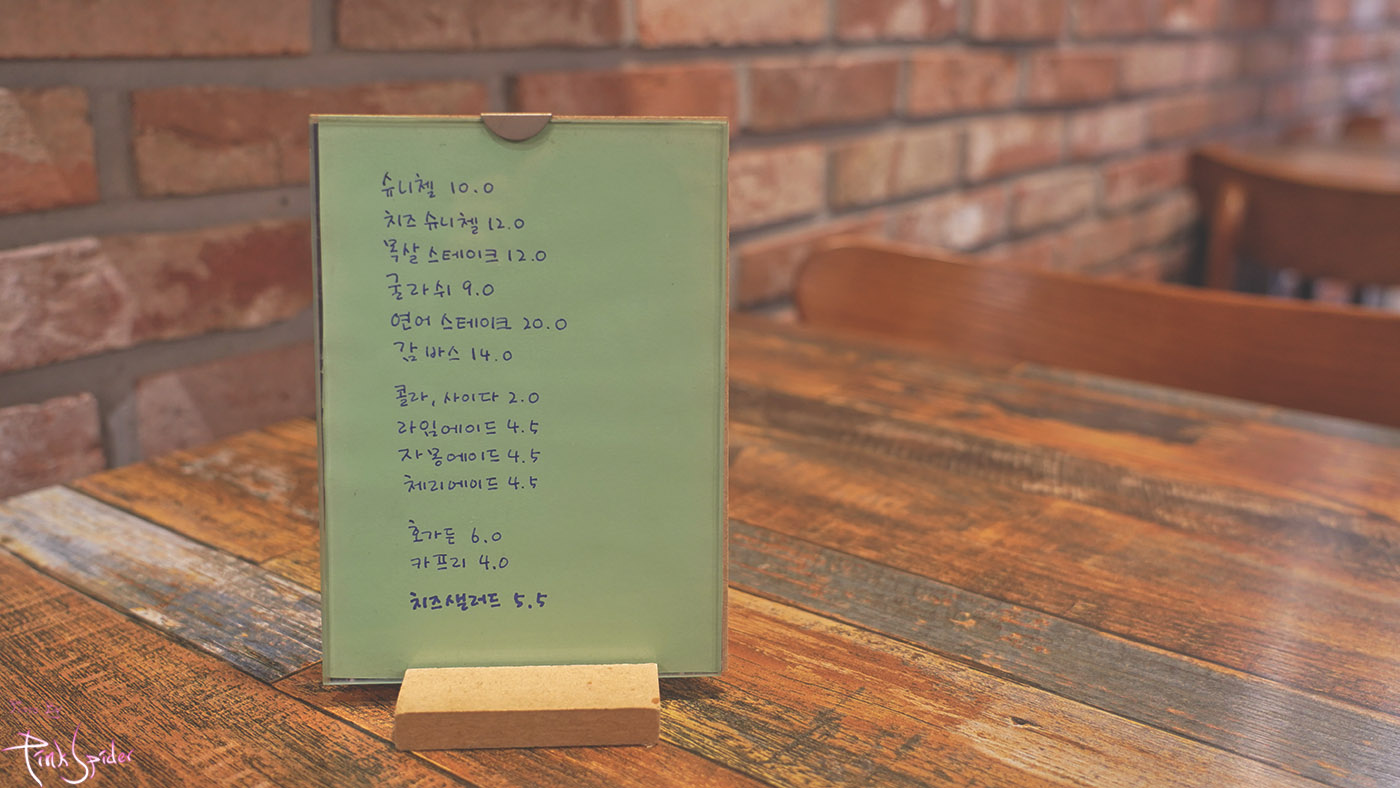 슈니첼 10.0
치즈 슈니첼 12.0
목살 스테이크 12.0
굴라쉬 9.0
연어 스테이크 20.0
감바스 14.0
콜라, 사이다 2.0
라임에이드 4.5
자몽에이드 4.5
체리에이드 4.5
호가든 6.0
카프리 4.0
치즈샐러드 5.5
Pink Spider